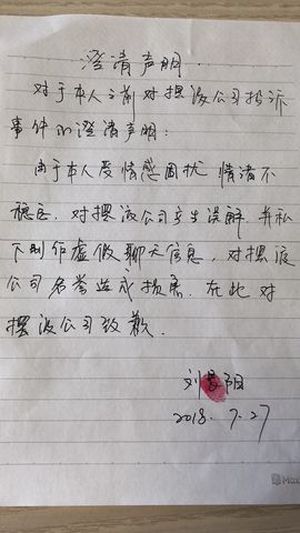 澄清声明
对于本人之前对摆渡公司投诉
事件的澄清声明:
由于本人受情感困扰 情绪不
稳定.对摆渡公司产生误解.并私
下制作虚假聊天信息,对摆渡
公司名誉造成损害.在此对
摆渡公司致歉.
刘 阳
2018.7.27